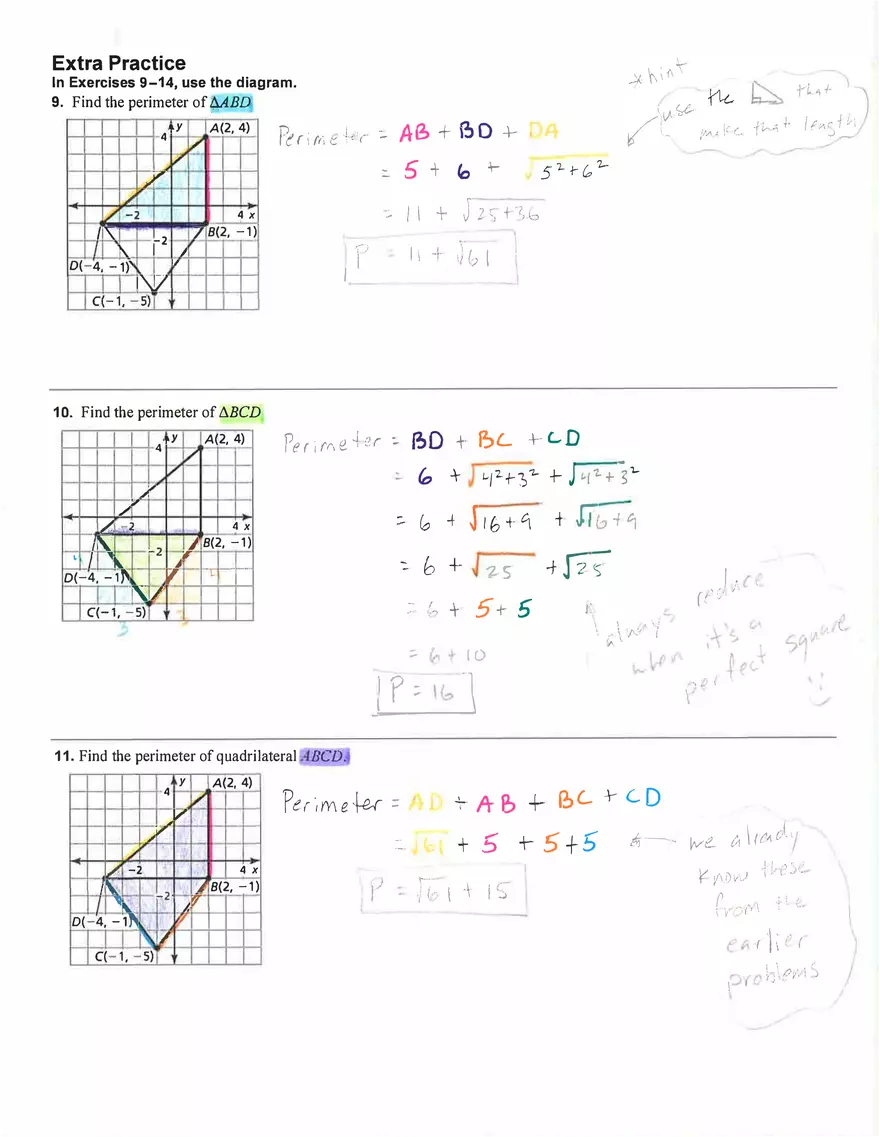 Extra Practice
In Exercises 9–14, use the diagram.
9. Find the perimeter of ΔABD
* hint
use the that
make that length
Perimeter = AB + BD + DA
= 5 + 6 + √5²+6²
= 11 + √25+36
P = 11 + √61
4 y A(2, 4)
-2 4 x
B(2, −1)
-2
D(−4, −1)
C(−1, −5)
10. Find the perimeter of ΔBCD
Perimeter = BD + BC + CD
= 6 + √4²+3² + √4²+3²
= 6 + √16+9 + √16+9
= 6 + √25 + √25
= 6 + 5 + 5
= 6 + 10
P = 16
always reduce
when it's a
perfect square
4 y A(2, 4)
-2 4 x
B(2, −1)
4 -2
D(−4, −1) 4
C(−1, −5)
3 3
11. Find the perimeter of quadrilateral ABCD.
Perimeter = AD + AB + BC + CD
= √61 + 5 + 5 + 5
P = √61 + 15
we already
know these
from the
earlier
problems
4 y A(2, 4)
-2 4 x
B(2, −1)
-2
D(−4, −1)
C(−1, −5)